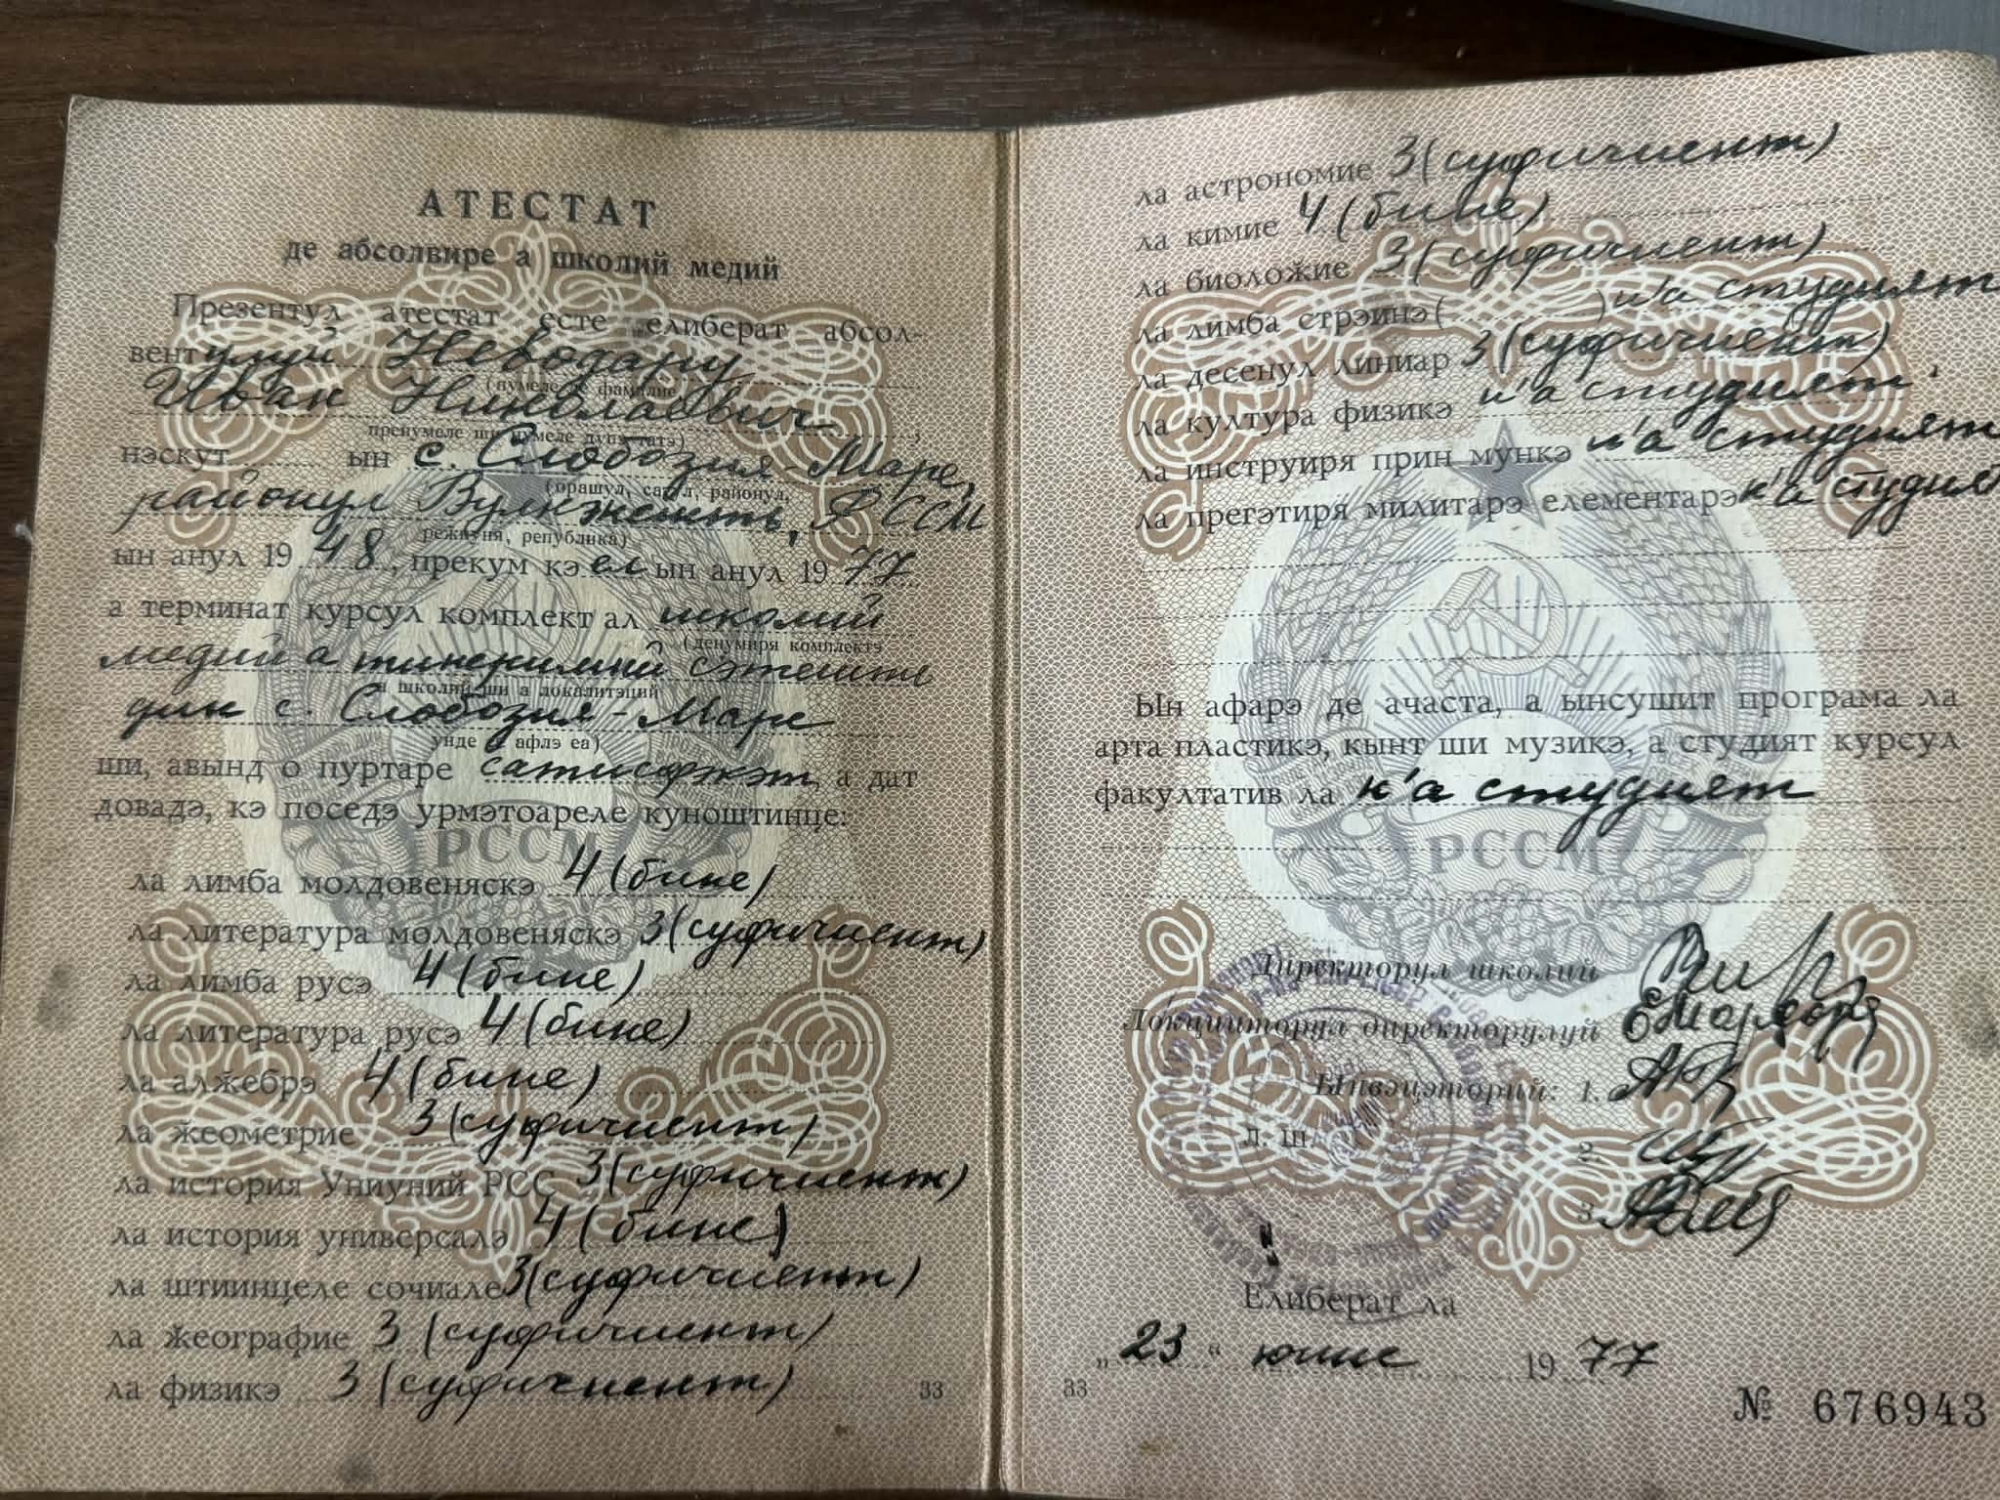 АТЕСТАТ
де абсолвире а школий медий
Презентул атестат есте елиберат абсол-
вентулуй Неводару
(нумеле де фамилие)
Иван Николаевич,
пренумеле ши нумеле дупэ татэ)
нэскут ын с. Слобозия-Маре,
(орашул, сатул, районул,
районул Вулкэнешть, РССМ
режиуня, република)
ын анул 1948, прекум кэ ел ын анул 1977
а терминат курсул комплект ал школий
(денумиря комплектэ
медий а тинеримий сэтешть
а школий ши а локалитэций
дин с. Слобозия-Маре
унде се афлэ еа)
ши, авынд о пуртаре сатисфэкэт, а дат
довадэ, кэ поседэ урмэтоареле куноштинце:
РССМ
ла лимба молдовеняскэ 4 (бине)
ла литература молдовеняскэ 3 (суфичиент)
ла лимба русэ 4 (бине)
ла литература русэ 4 (бине)
ла алжебрэ 4 (бине)
ла жеометрие 3 (суфичиент)
ла история Униуний РСС 3 (суфичиент)
ла история универсалэ 4 (бине)
ла штиинцеле сочиале 3 (суфичиент)
ла жеографие 3 (суфичиент)
ла физикэ 3 (суфичиент)
33
ла астрономие 3 (суфичиент)
ла кимие 4 (бине)
ла биоложие 3 (суфичиент)
ла лимба стрэинэ ( ) н'а студият
ла десенул линиар 3 (суфичиент)
ла култура физикэ н'а студият.
ла инструиря прин мункэ н'а студият
ла прегэтиря милитарэ елементарэ н'а студият
Ын афарэ де ачаста, а ынсушит програма ла
арта пластикэ, кынт ши музикэ, а студият курсул
факултатив ла н'а студият
РССМ
Директорул школий
Локцииторул директорулуй
Ынвэцэторий: 1.
Л. Ш.
2.
3.
Елиберат ла
„23“ юние 1977
33
№ 676943